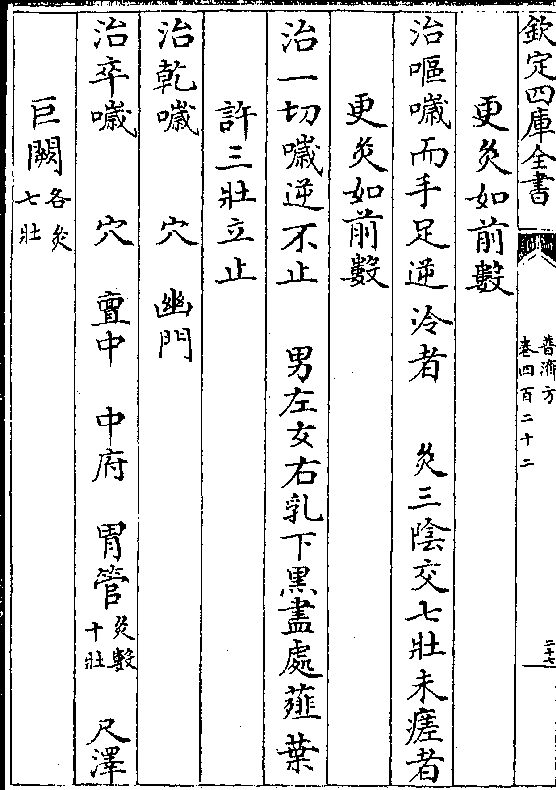 欽定四庫全書
普濟方
卷四百二十二
更灸如前數
治嘔噦而手足逆冷者 灸三陰交七壯未瘥者
更灸如前數
治一切噦逆不止 男左女右乳下黑盡處薤葉
許三壯立止
治乾噦 穴 幽門
治卒噦 穴 亶中 中府 胃管灸數十壯 尺澤
巨闕各灸七壯